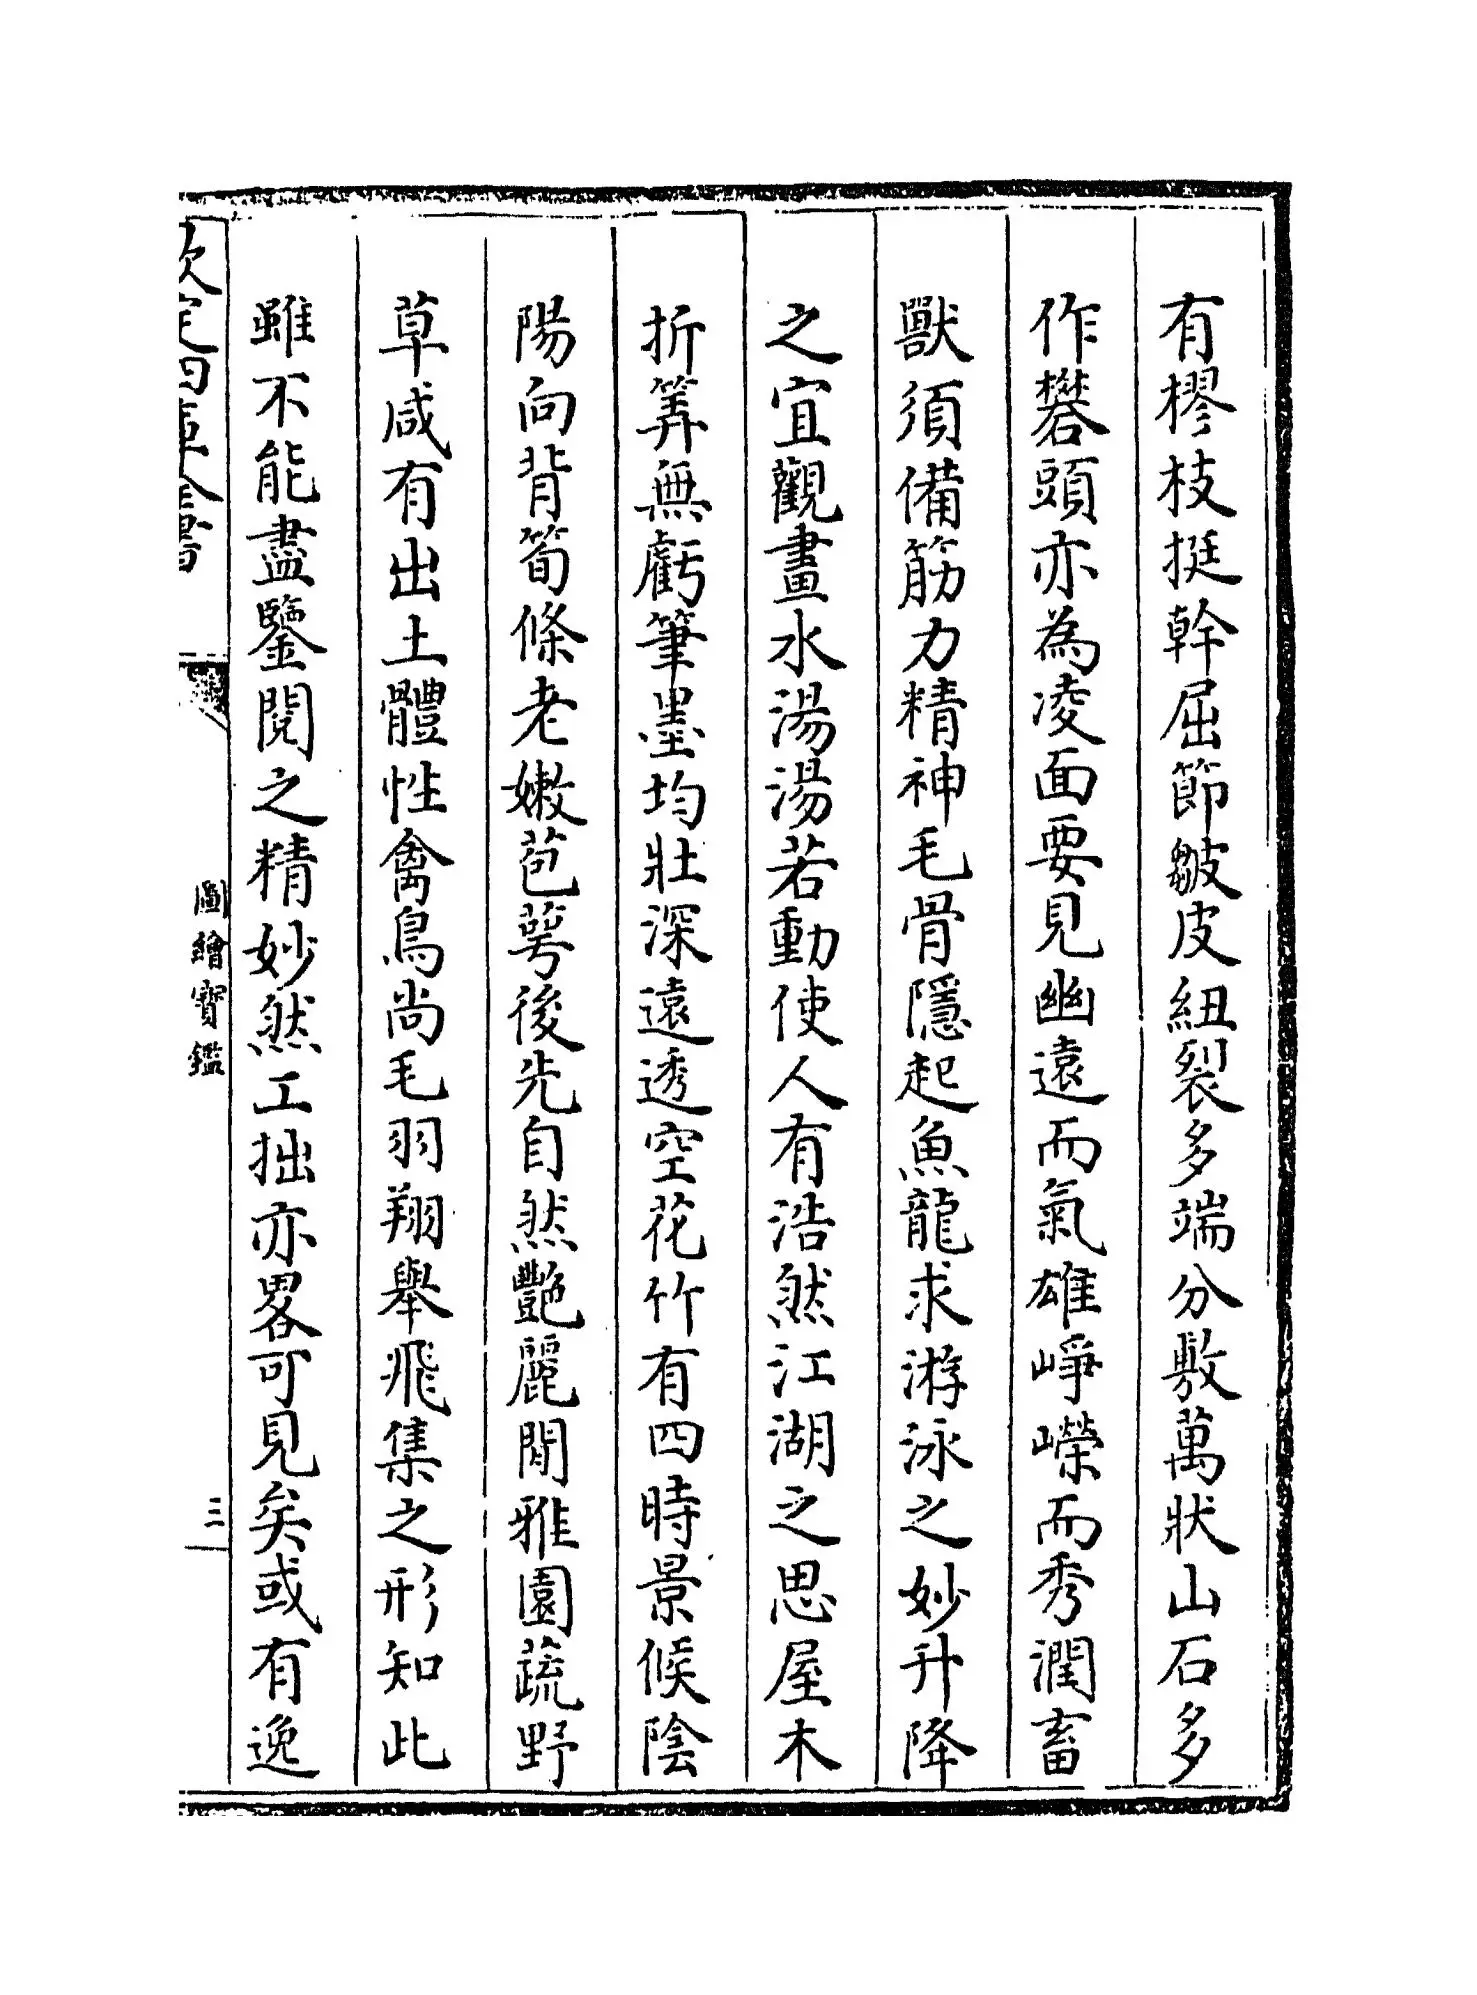 有樛枝挺幹屈節皺皮紐裂多端分敷萬狀山石多
作礬頭亦為凌面要見幽遠而氣雄崢嶸而秀潤畜
獸須備筋力精神毛骨隱起魚龍求游泳之妙升降
之宜觀畫水湯湯若動使人有浩然江湖之思屋木
折筭無虧筆墨均壯深遠透空花竹有四時景候陰
陽向背筍條老嫩苞萼後先自然艷麗閒雅園蔬野
草咸有出土體性禽鳥尚毛羽翔舉飛集之形知此
雖不能盡鑒閱之精妙然工拙亦畧可見矣或有逸
欽定四庫全書
圖繪寶鑑
三